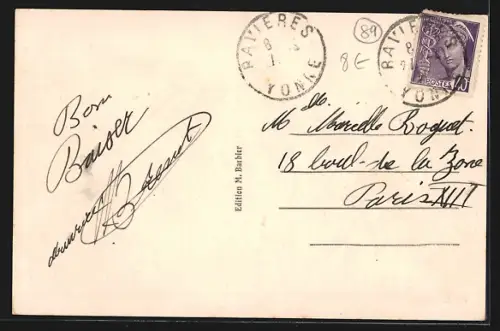 RAVIÈRES
YONNE
89
8E
RAVIÈRES
YONNE
POSTES
40
Bon
Baiser
Edition M. Barbier
Melle Marcelle Roguet.
18 boul. de la Zone
Paris XIII